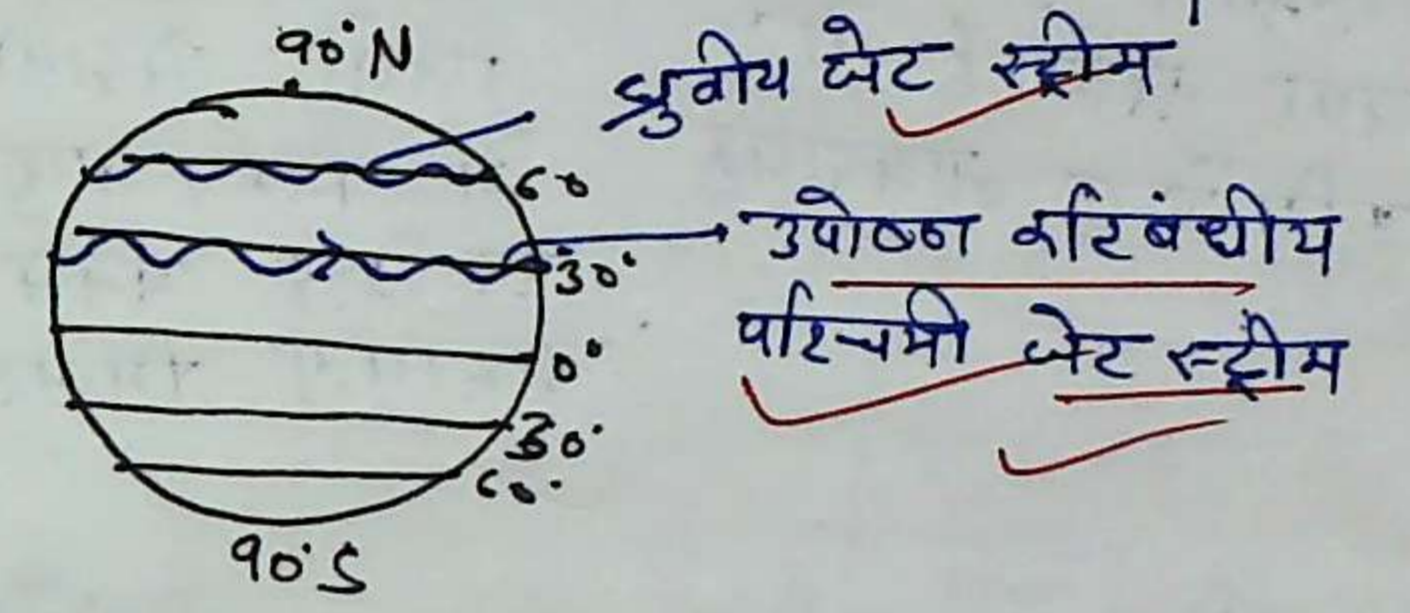 90°N
ध्रुवीय जेट स्ट्रीम
60
उपोष्ण कटिबंधीय
30°
पश्चिमी जेट स्ट्रीम
0°
30°
60°
90°S